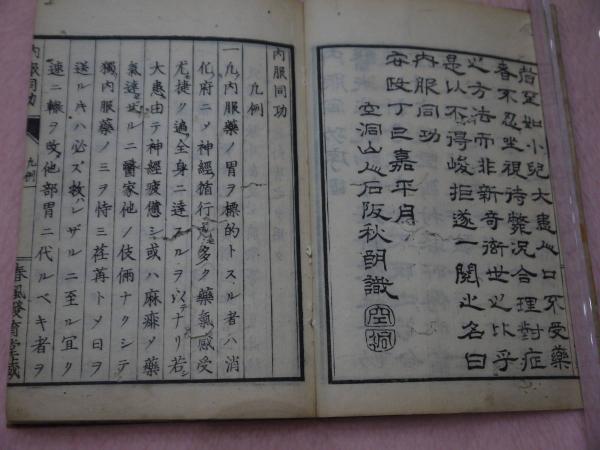 皆至如小兒大患心口不受藥
者不忍坐視待斃況合理對症
之方法而非新奇衒世之比乎
是以不得峻拒遂一閱之名曰
內服同功
安政丁巳嘉平月
空洞山人石阪秋朗識
空洞
內服同功
凡例
一凡內服藥ノ胃ヲ標的トスル者ハ消
化府ニメ神經循行尤多ク藥氣感受
尤捷ク遍全身ニ達スルヲ以テナリ若シ
大患由テ神經疲憊シ或ハ麻痺メ藥
氣達セザルニ醫家他ノ伎倆ナクシテ
獨內服藥ノミヲ恃ミ荏苒トメ日ヲ
送ルキハ必ズ救ハレザルニ至ル宜ク
速ニ轍ヲ改他部胃ニ代ルベキ者ヲ
內服同功
凡例
春風發育堂藏